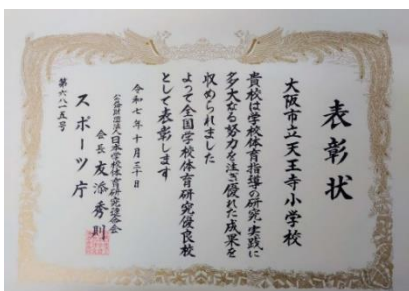 表彰状
大阪市立天王寺小学校
貴校は学校体育指導の研究・実践に
多大なる努力を注ぎ優れた成果を
収められました
よって全国学校体育研究優良校
として表彰します
令和七年十月三十日
公益財団法人日本学校体育研究連合会
会長 友添秀則
スポーツ庁
第六八一五号